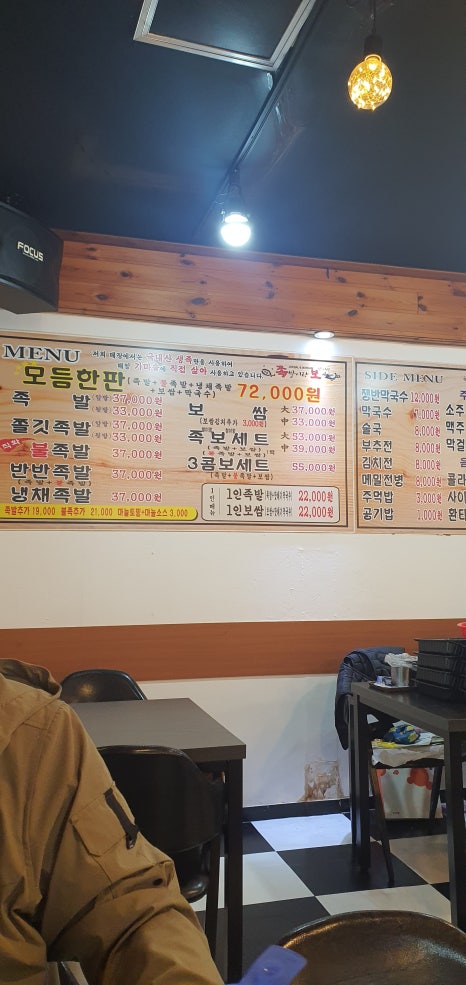 FOCUS
MENU
저희 매장에서는 국내산 생족만을 사용하여
매일 가마솥에 직접 삶아 사용하고 있습니다
모듬한판 (족발+불족발+냉채족발+보쌈+막국수) 72,000원
족 발 37,000원
33,000원
쫄깃족발 37,000원
33,000원
불족발 37,000원
반반족발 37,000원
냉채족발 37,000원
족발추가 19,000 불족추가 21,000 마늘토핑+마늘소스 3,000
보 쌈 大 37,000원
(보쌈김치추가 3,000원) 中 33,000원
족보세트 大 53,000원
(족발+보쌈) 中 39,000원
3콤보세트 55,000원
(족발+불족발+보쌈)
1인메뉴
1인족발 22,000원
1인보쌈 22,000원
SIDE MENU
쟁반막국수 12,000원
막국수
술국 8,000원
부추전 8,000원
김치전 8,000원
메밀전병 8,000원
주먹밥 3,000원
공기밥 1,000원
소주
맥주
막걸
콜라
사이
환타